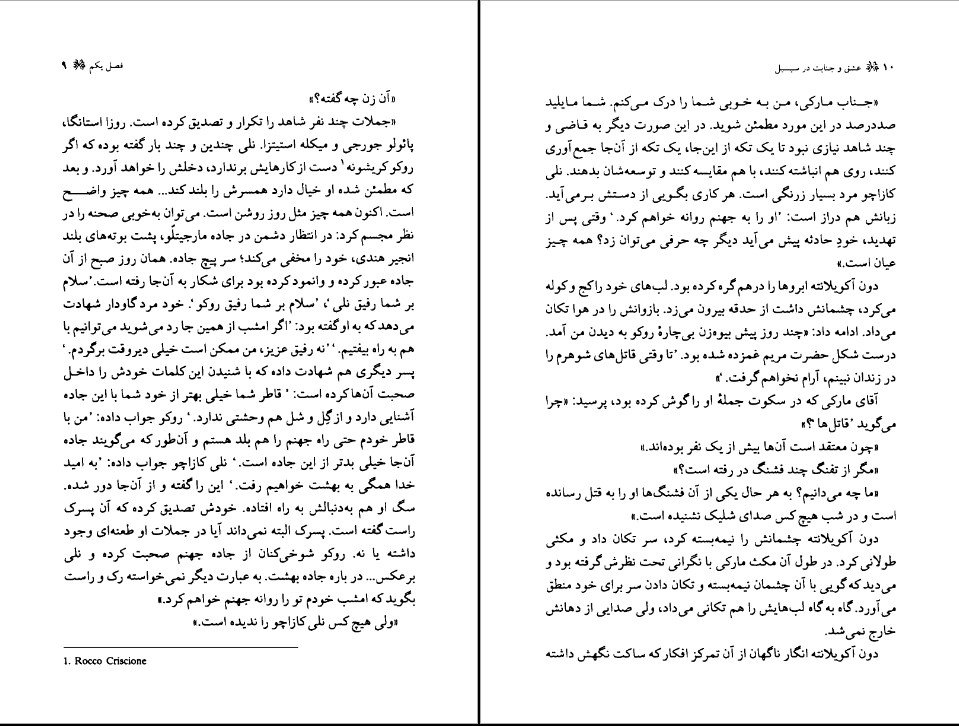 فصل یکم ۹
«آن زن چه گفته؟»
«جملات چند نفر شاهد را تکرار و تصدیق کرده است. روزا استانگا،
پائولو جورجی و میکله استیتزا. نلی چندین و چند بار گفته بوده که اگر
روکو کریشونه۱ دست از کارهایش برندارد، دخلش را خواهد آورد. و بعد
که مطمئن شده او خیال دارد همسرش را بلند کند... همه چیز واضح
است. اکنون همه چیز مثل روز روشن است. می‌توان به‌خوبی صحنه را در
نظر مجسم کرد: در انتظار دشمن در جاده مارجیتلّو، پشت بوته‌های بلند
انجیر هندی، خود را مخفی می‌کند؛ سر پیچ جاده. همان روز صبح از آن
جاده عبور کرده و وانمود کرده بود برای شکار به آن‌جا رفته است. ‘سلام
بر شما رفیق نلی ’، ‘سلام بر شما رفیق روکو ’. خود مرد گاودار شهادت
می‌دهد که به او گفته بود: ‘اگر امشب از همین جا رد می‌شوید می‌توانیم با
هم به راه بیفتیم. ’ ‘نه رفیق عزیز، من ممکن است خیلی دیروقت برگردم. ’
پسر دیگری هم شهادت داده که با شنیدن این کلمات خودش را داخل
صحبت آن‌ها کرده است: ‘ قاطر شما خیلی بهتر از خود شما با این جاده
آشنایی دارد و از گِل و شل هم وحشتی ندارد. ’ روکو جواب داده: ‘من با
قاطر خودم حتی راه جهنم را هم بلد هستم و آن‌طور که می‌گویند جاده
آن‌جا خیلی بدتر از این جاده است. ’ نلی کازاچو جواب داده: ‘به امید
خدا همگی به بهشت خواهیم رفت. ’ این را گفته و از آن‌جا دور شده.
سگ او هم به‌دنبالش به راه افتاده. خودش تصدیق کرده که آن پسرک
راست گفته است. پسرک البته نمی‌داند آیا در جملات او طعنه‌ای وجود
داشته یا نه. روکو شوخی‌کنان از جاده جهنم صحبت کرده و نلی
برعکس... در باره جاده بهشت. به عبارت دیگر نمی‌خواسته رک و راست
بگوید که امشب خودم تو را روانه جهنم خواهم کرد.»
«ولی هیچ کس نلی کازاچو را ندیده است.»
1. Rocco Criscione
۱۰ عشق و جنایت در سیسیل
«جناب مارکی، من به خوبی شما را درک می‌کنم. شما مایلید
صددرصد در این مورد مطمئن شوید. در این صورت دیگر به قاضی و
چند شاهد نیازی نبود تا یک تکه از این‌جا، یک تکه از آن‌جا جمع‌آوری
کنند، روی هم انباشته کنند، با هم مقایسه کنند و توسعه‌شان بدهند. نلی
کازاچو مرد بسیار زرنگی است. هر کاری بگویی از دستش برمی‌آید.
زبانش هم دراز است: ‘او را به جهنم روانه خواهم کرد. ’ وقتی پس از
تهدید، خودِ حادثه پیش می‌آید دیگر چه حرفی می‌توان زد؟ همه چیز
عیان است.»
دون آکویلانته ابروها را درهم گره کرده بود. لب‌های خود را کج و کوله
می‌کرد، چشمانش داشت از حدقه بیرون می‌زد. بازوانش را در هوا تکان
می‌داد. ادامه داد: «چند روز پیش بیوه‌زن بی‌چارهٔ روکو به دیدن من آمد.
درست شکل حضرت مریم غمزده شده بود. ‘تا وقتی قاتل‌های شوهرم را
در زندان نبینم، آرام نخواهم گرفت. ’»
آقای مارکی که در سکوت جملهٔ او را گوش کرده بود، پرسید: «چرا
می‌گوید ‘قاتل‌ها ’؟»
«چون معتقد است آن‌ها بیش از یک نفر بوده‌اند.»
«مگر از تفنگ چند فشنگ در رفته است؟»
«ما چه می‌دانیم؟ به هر حال یکی از آن فشنگ‌ها او را به قتل رسانده
است و در شب هیچ کس صدای شلیک نشنیده است.»
دون آکویلانته چشمانش را نیمه‌بسته کرد، سر تکان داد و مکثی
طولانی کرد. در طول آن مکث مارکی با نگرانی تحت نظرش گرفته بود و
می‌دید که گویی با آن چشمان نیمه‌بسته و تکان دادن سر برای خود منطق
می‌آورد. گاه به گاه لب‌هایش را هم تکانی می‌داد، ولی صدایی از دهانش
خارج نمی‌شد.
دون آکویلانته انگار ناگهان از آن تمرکز افکار که ساکت نگهش داشته